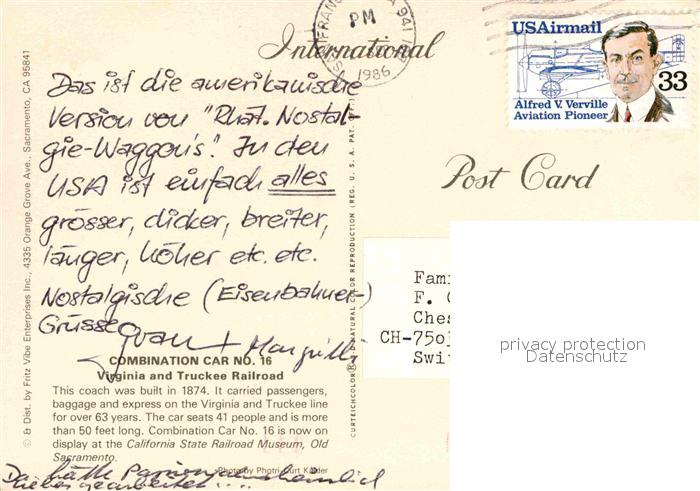 International
Post Card
USAirmail
33
Alfred V. Verville
Aviation Pioneer
PM
1986
Das ist die amerikanische
Version von "Rhät. Nostal-
gie-Waggon's". In den
USA ist einfach alles
grösser, dicker, breiter,
länger, höher etc. etc.
Nostalgische (Eisenbahner-)
Grüsse
COMBINATION CAR NO. 16
Virginia and Truckee Railroad
This coach was built in 1874. It carried passengers,
baggage and express on the Virginia and Truckee line
for over 63 years. The car seats 41 people and is more
than 50 feet long. Combination Car No. 16 is now on
display at the California State Railroad Museum, Old
Sacramento.
Photo by Photri, Curt Kaider
© & Dist. by Fritz Vibe Enterprises Inc., 4335 Orange Grove Ave., Sacramento, CA 95841
CURTEICHCOLOR® 3-D NATURAL COLOR REPRODUCTION (REG. U. S. A. PAT. OFF.)
Fami
F.
Ches
CH-750
Swi
privacy protection
Datenschutz